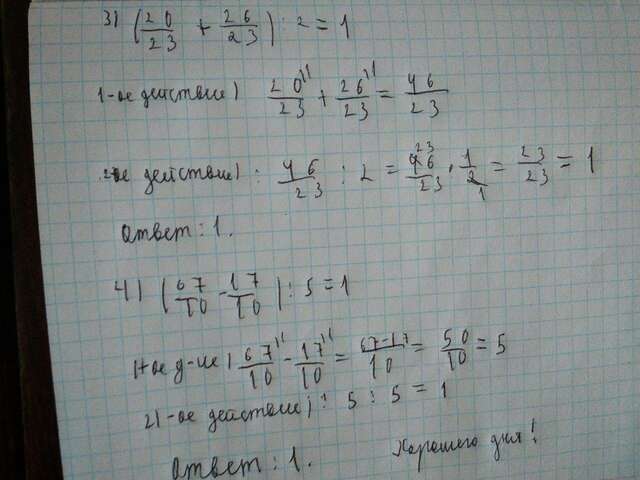 3) (20/23 + 26/23) : 2 = 1
1-ое действие) 20/23 + 26/23 = 46/23
2-ое действие) : 46/23 : 2 = 46/23 · 1/2 = 23/23 = 1
Ответ : 1.
4) (67/10 - 17/10) : 5 = 1
1-ое д-ие) 67/10 - 17/10 = 67-17/10 = 50/10 = 5
2)-ое действие) : 5 : 5 = 1
Ответ : 1.
Хорошего дня!